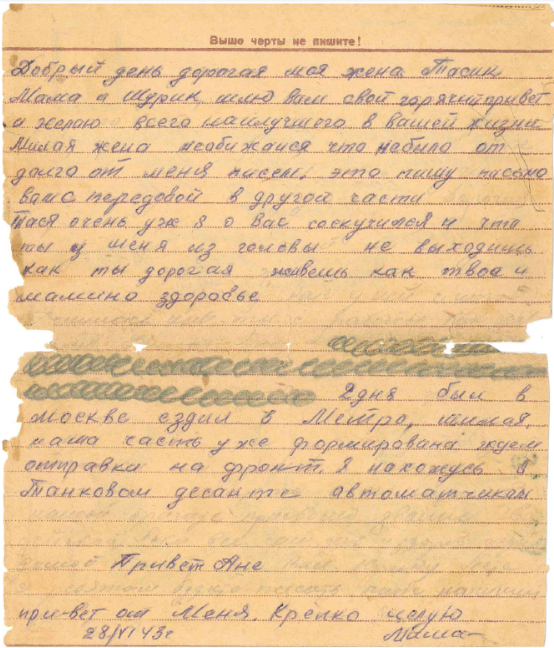 Выше черты не пишите!
Добрый день дорогая моя жена Тасик
Мама и Шурик шлю Вам свой горячий привет
и желаю всего наилучшего в вашей жизни
Милая жена необижайся что небыло от
долго от меня писем, эта пишу письмо
вам с передовой в другой части
Тася очень уж я о Вас соскучился и что
ты у меня из головы не выходишь
как ты дорогая живешь как твое и
мамино здоровье
2 дня был в
москве ездил в Метро, милая,
наша часть уже формирована ждем
отправки на фронт. я нахожусь в
Танковом десанте автоматчиком
Привет Ане
привет от Меня. Крепко целую
28/VI 43г